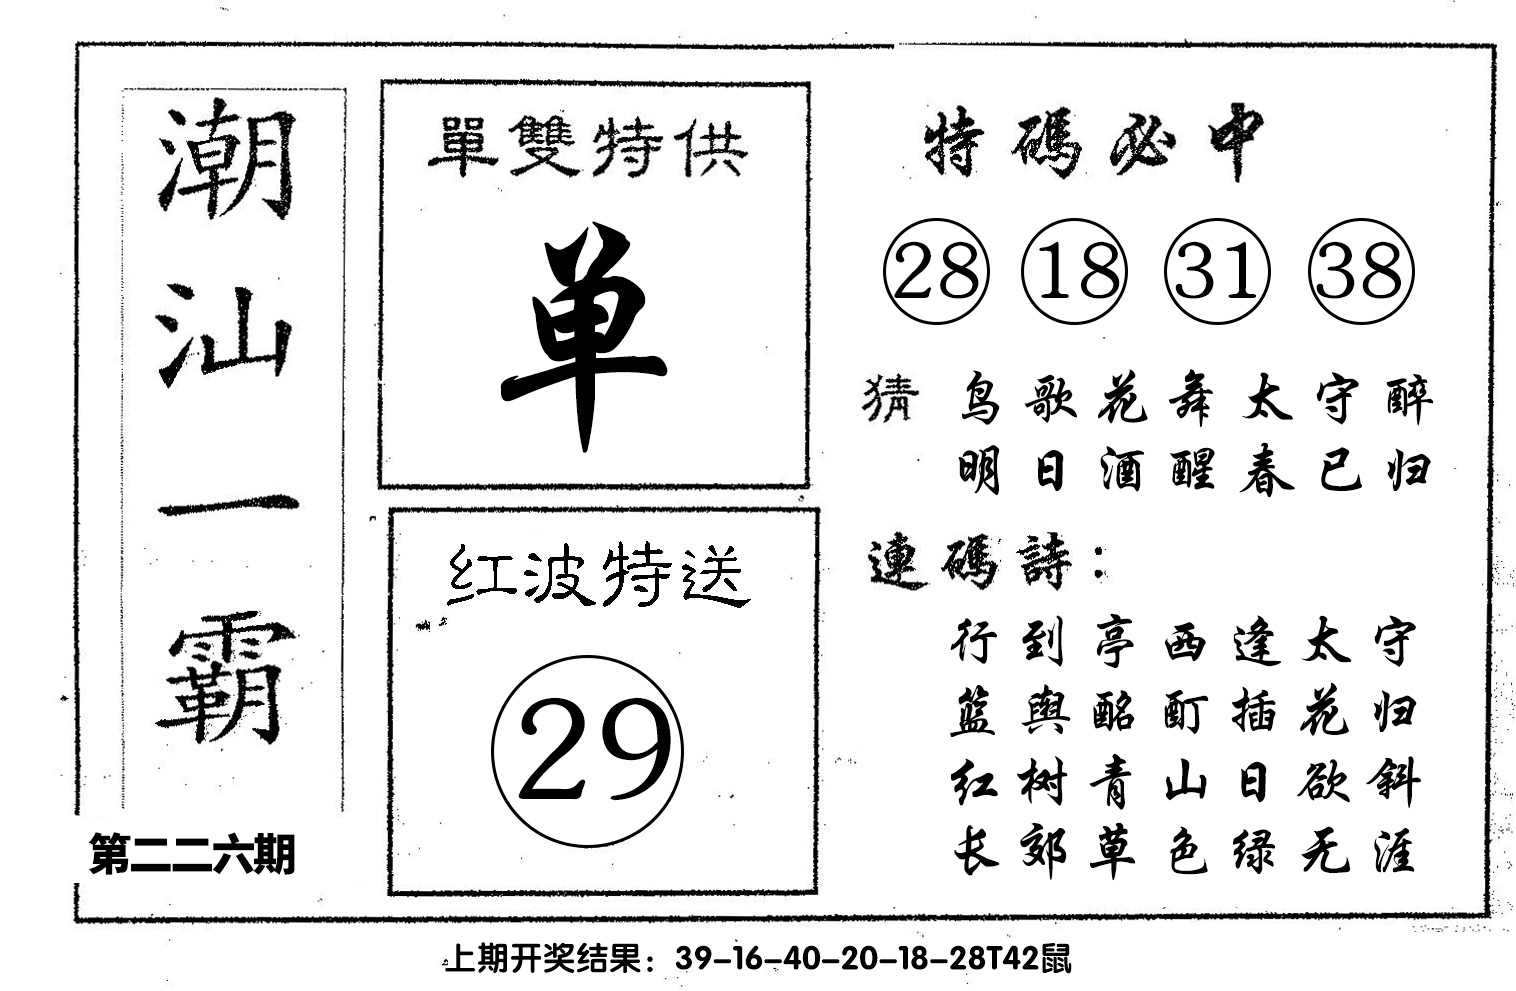 潮汕一霸
第二二六期
單雙特供
单
红波特送
29
特碼必中
28 18 31 38
猜 鸟歌花舞太守醉
明日酒醒春已归
連碼詩：
行到亭西逢太守
篮舆酩酊插花归
红树青山日欲斜
长郊草色绿无涯
上期开奖结果：39-16-40-20-18-28T42鼠